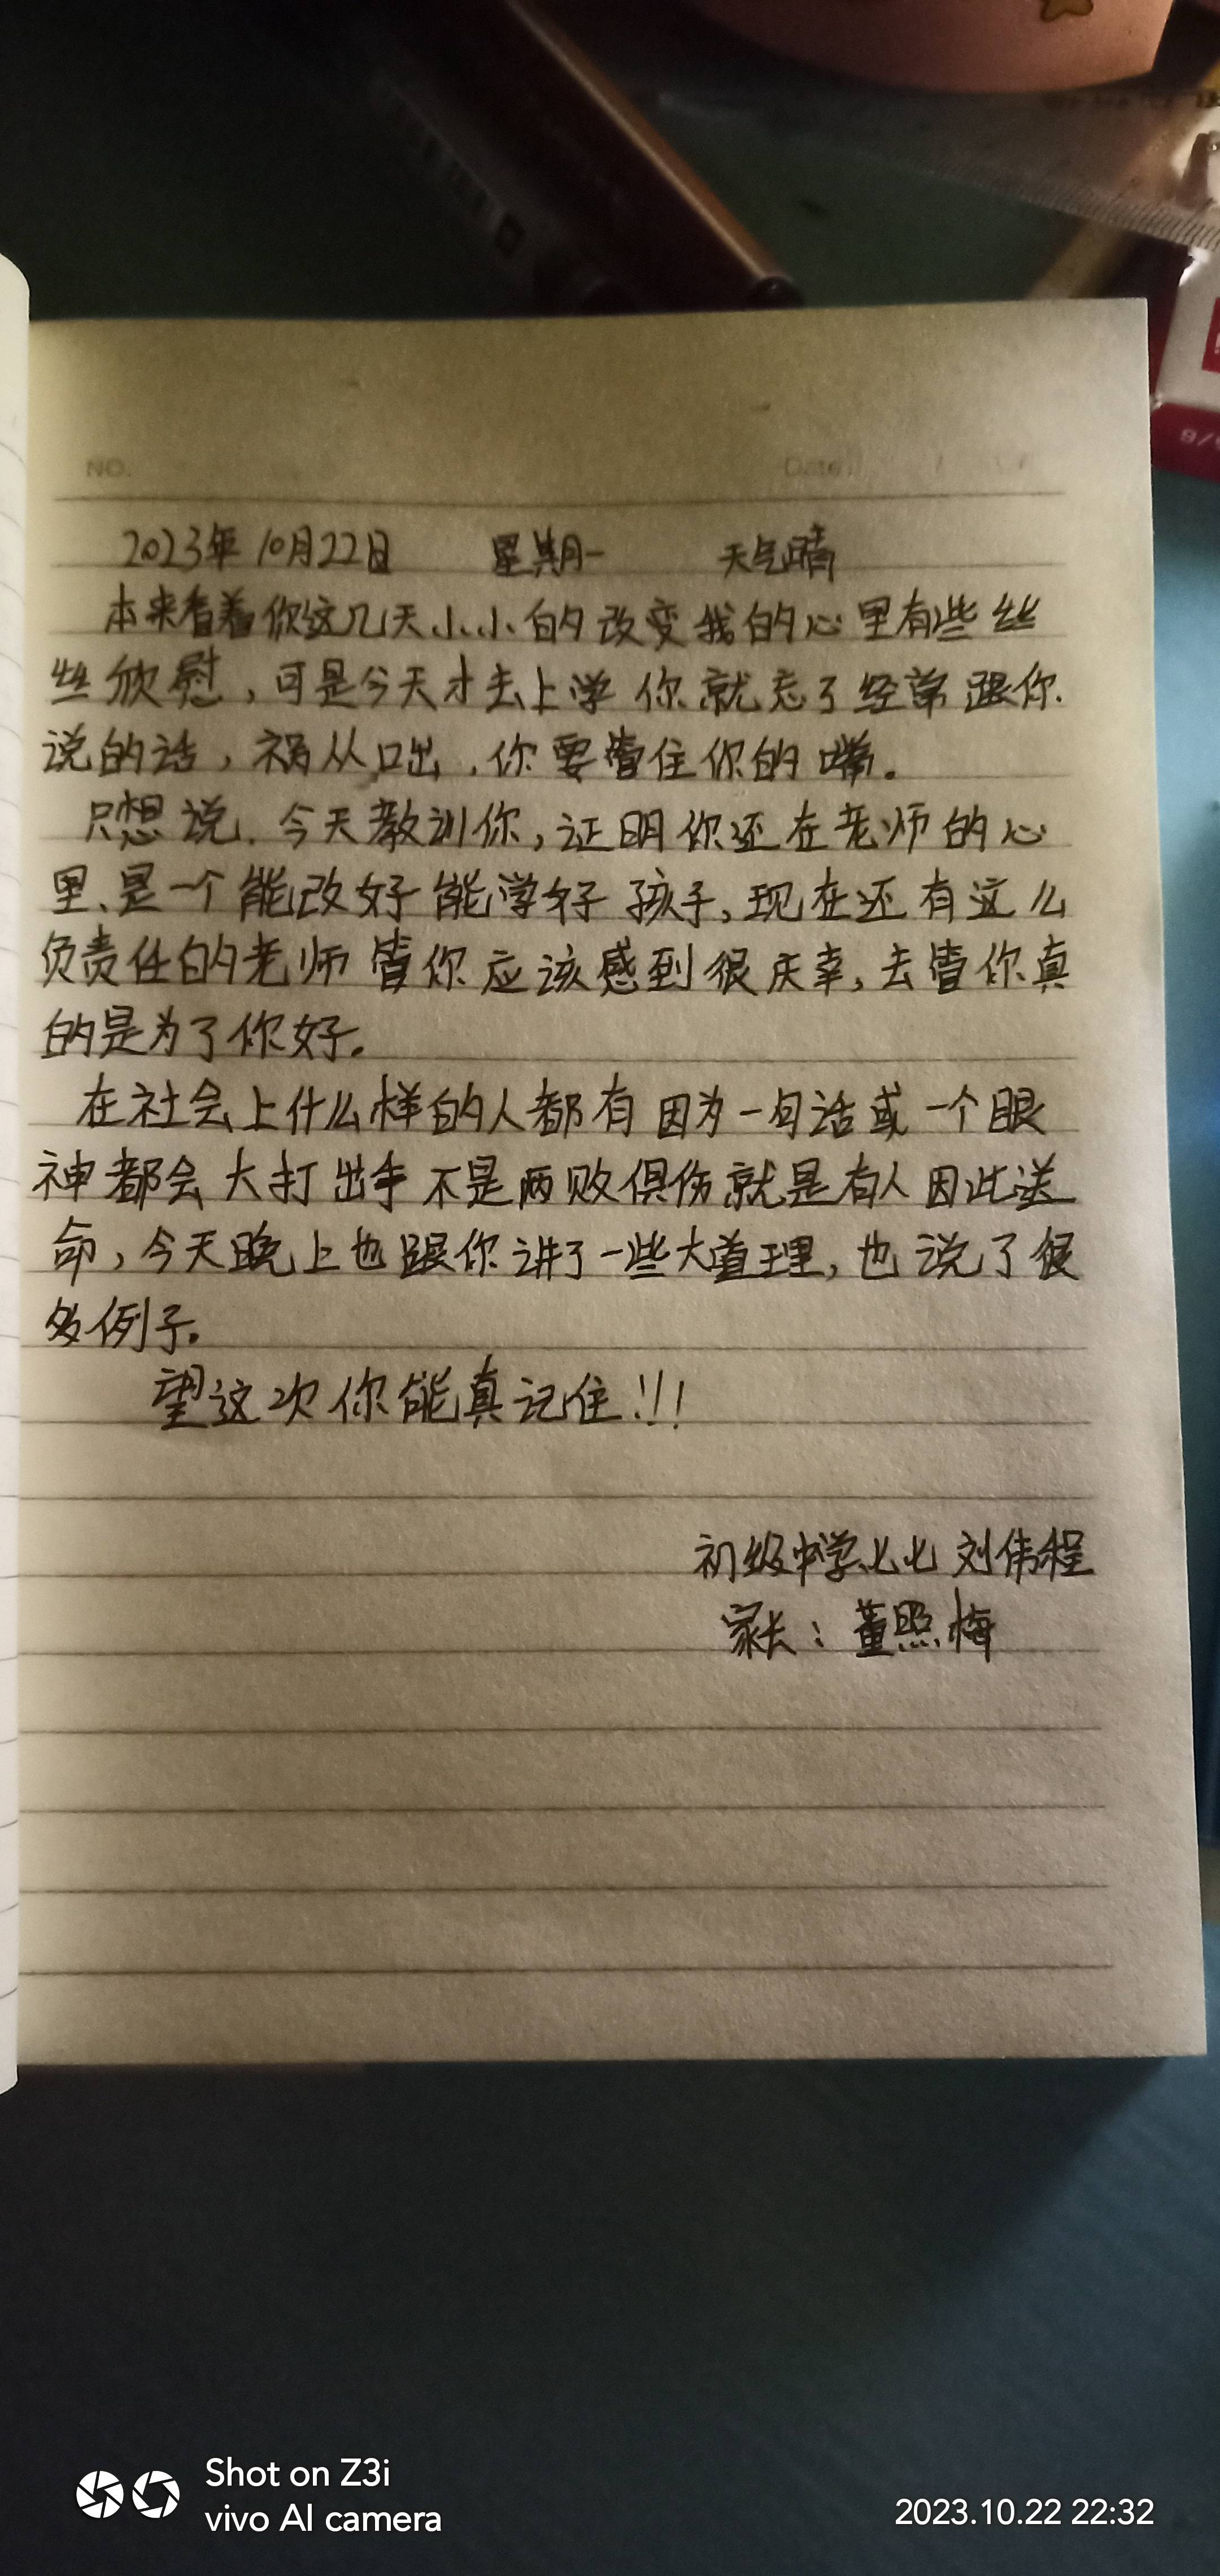 NO.
Date
2023年10月22日 星期一 天气晴
本来看着你这几天小小的改变我的心里有些丝
丝欣慰,可是今天才去上学你就忘了经常跟你
说的话,祸从口出,你要管住你的嘴。
只想说.今天教训你,证明你还在老师的心
里、是一个能改好能学好孩子,现在还有这么
负责任的老师管你应该感到很庆幸,去管你真
的是为了你好。
在社会上什么样的人都有因为一句话或一个眼
神都会大打出手不是两败俱伤就是有人因此送
命,今天晚上也跟你讲了一些大道理,也说了很
多例子。
望这次你能真记住!!!
初级中学七七 刘伟程
家长:董照梅
Shot on Z3i
vivo AI camera
2023.10.22 22:32